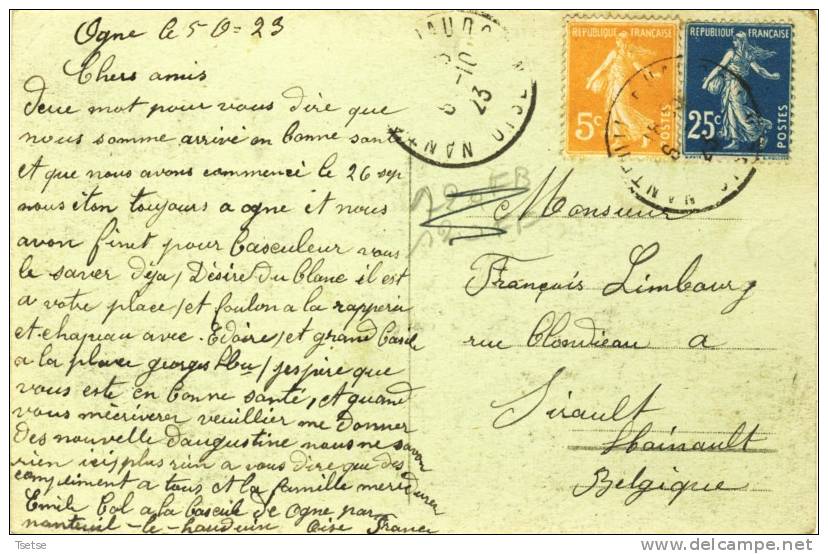 Ogne le 5-10-23
Chers amis
deux mot pour vous dire que
nous somme arrivé en bonne santé
et que nous avons commencé le 26 sep
nous éton toujours a ogne et nous
avon finet pour basculeur vous
le saver déja, Désiré du blanc il est
a votre place, et foulon a la rapperie
et chapeau avec Edoire, et grand basile
a la place georges, jespère que
vous este en bonne santé, et quand
vous mécriverer veuillier me donner
des nouvelle daugustine nous ne savon
rien ici, plus rien a vous dire que des
compliment a tous et la famille
Emile Col a la bascule de Ogne par
nanteuil-le-hauduin Oise France
REPUBLIQUE FRANÇAISE
5c
POSTES
REPUBLIQUE FRANÇAISE
25c
POSTES
Monsieur
François Limbourg
rue Blondieau a
Sirault
Hainault
Belgique
Tsetse
delcampe.net